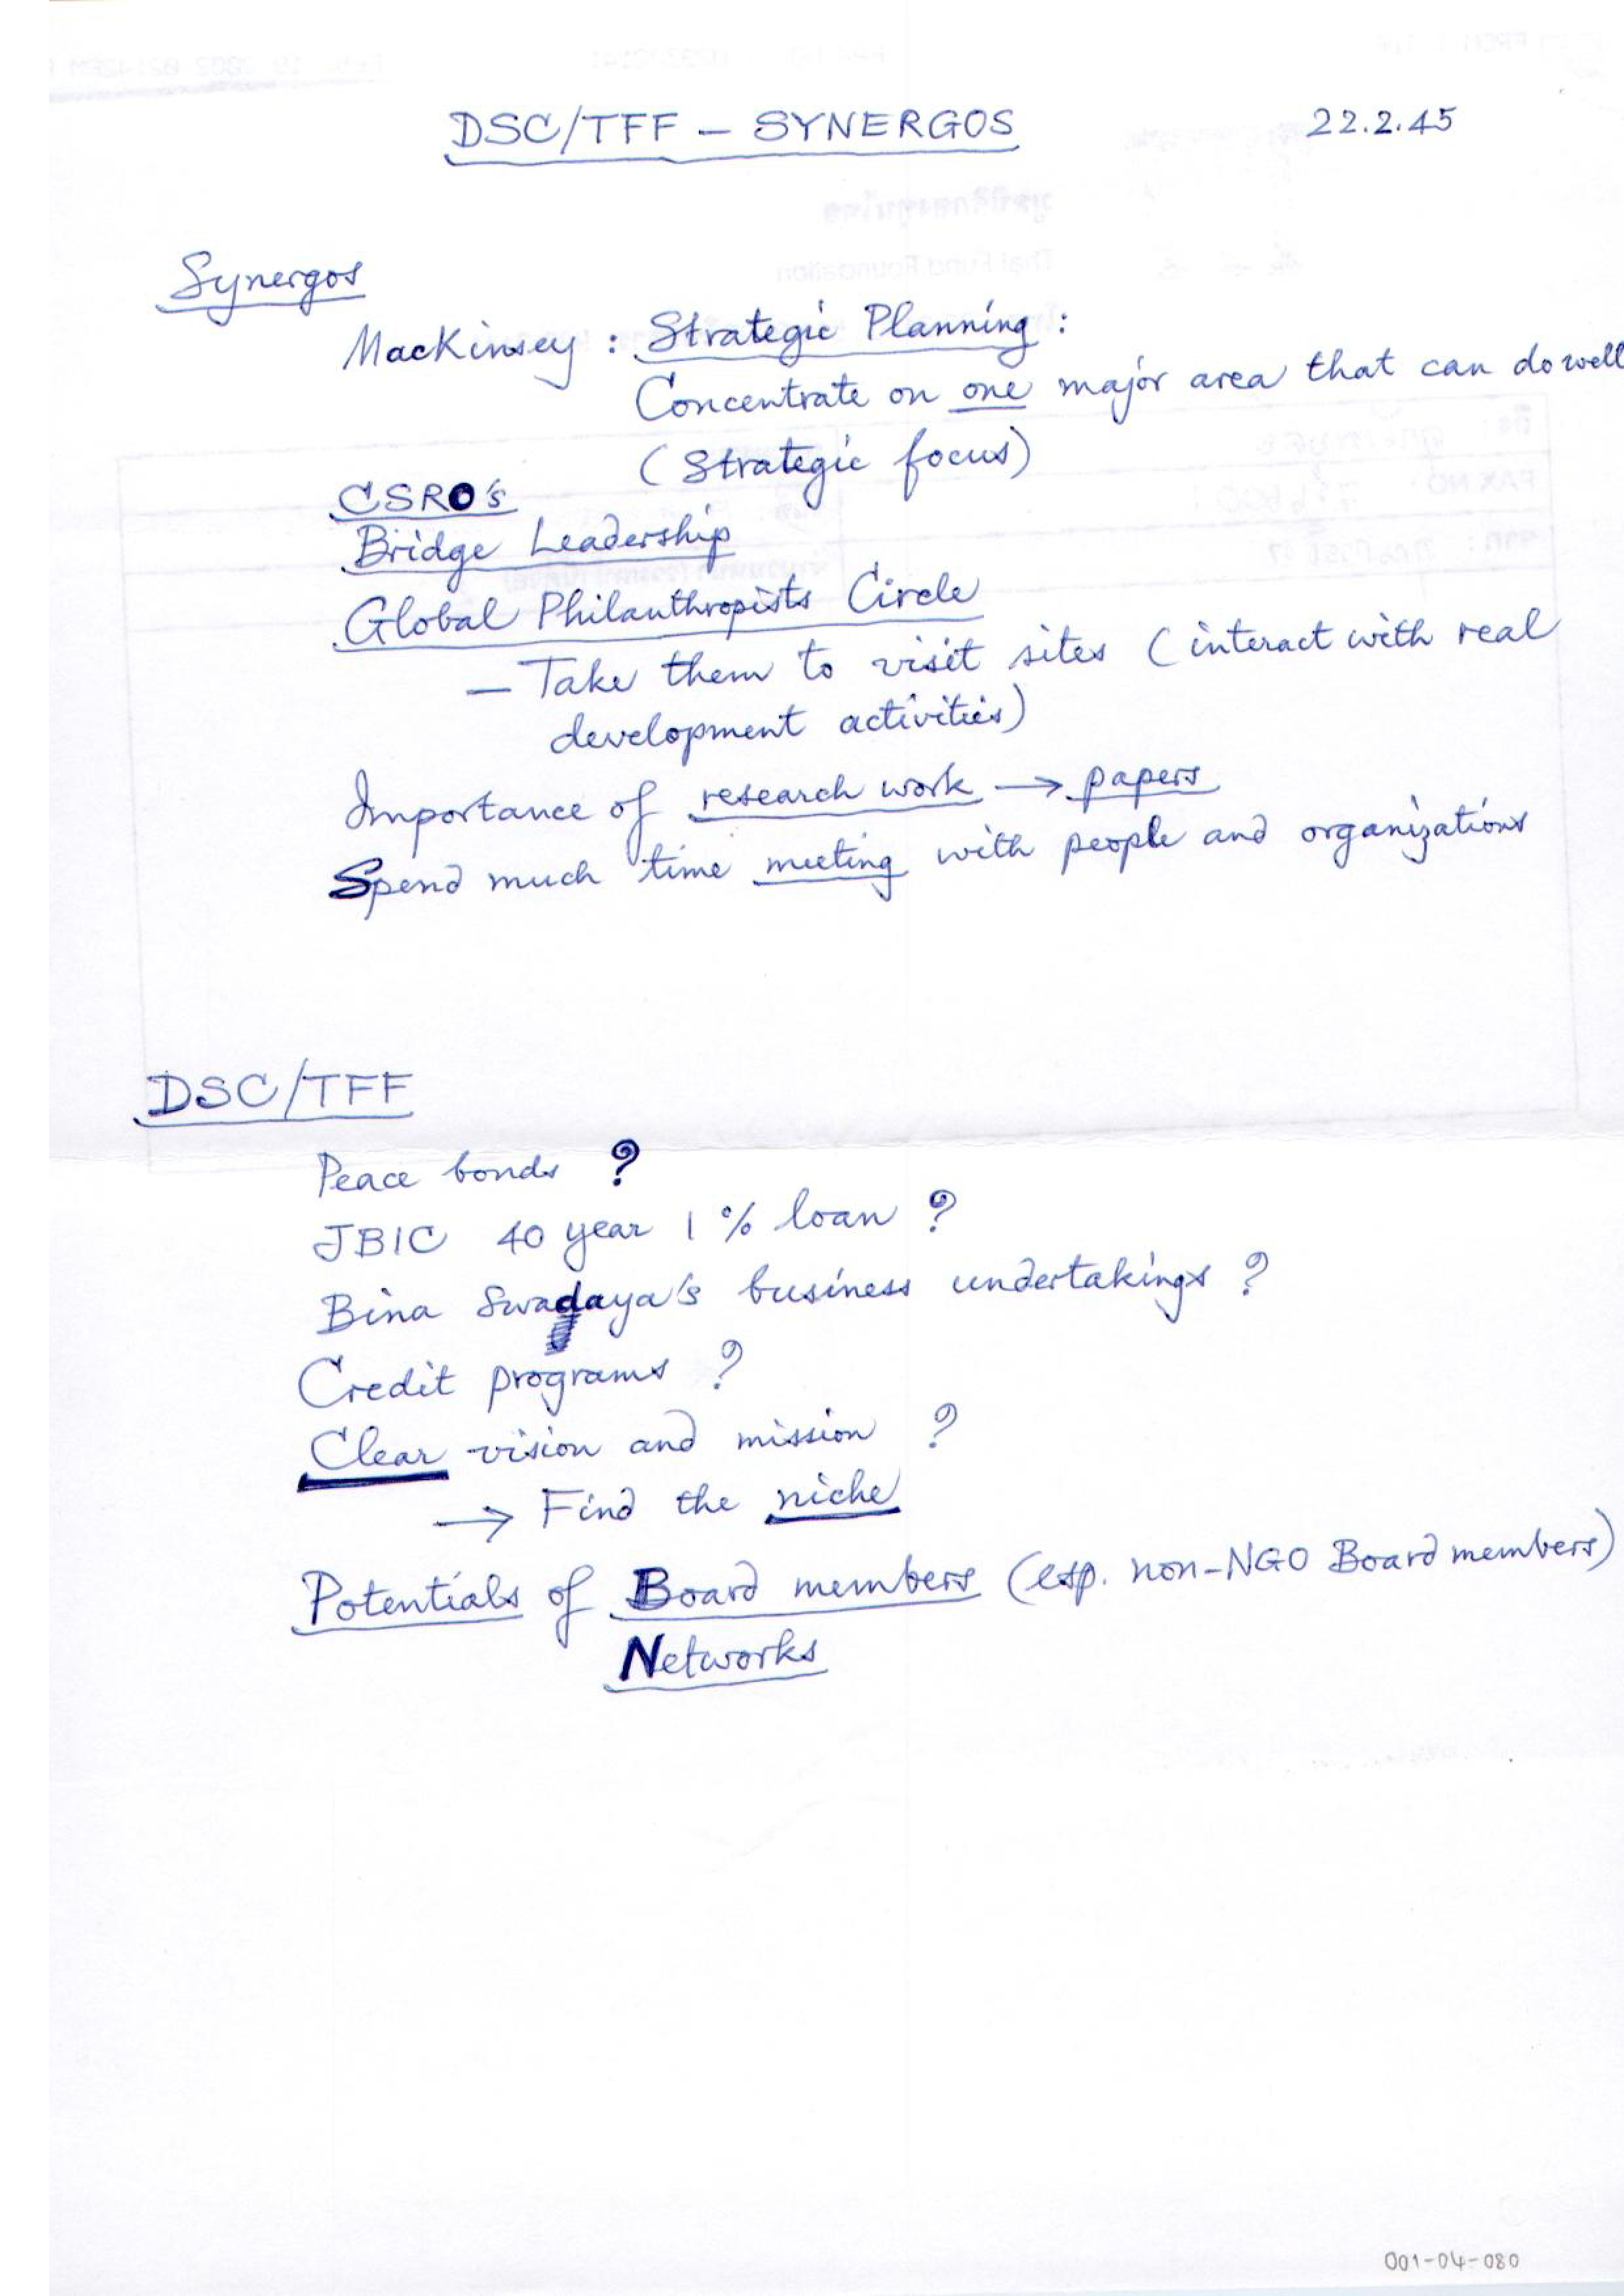 DSC/TFF – SYNERGOS 22.2.45
Synergos
MacKinsey : Strategic Planning :
Concentrate on one major area that can do well
(Strategic focus)
CSRO's
Bridge Leadership
Global Philanthropists Circle
— Take them to visit sites (interact with real
development activities)
Importance of research work → papers
Spend much time meeting with people and organizations
DSC/TFF
Peace bonds ?
JBIC 40 year 1 % loan ?
Bina Swadaya's business undertakings ?
Credit programs ?
Clear vision and mission ?
→ Find the niche
Potentials of Board members (esp. non-NGO Board members)
Networks
001-04-080